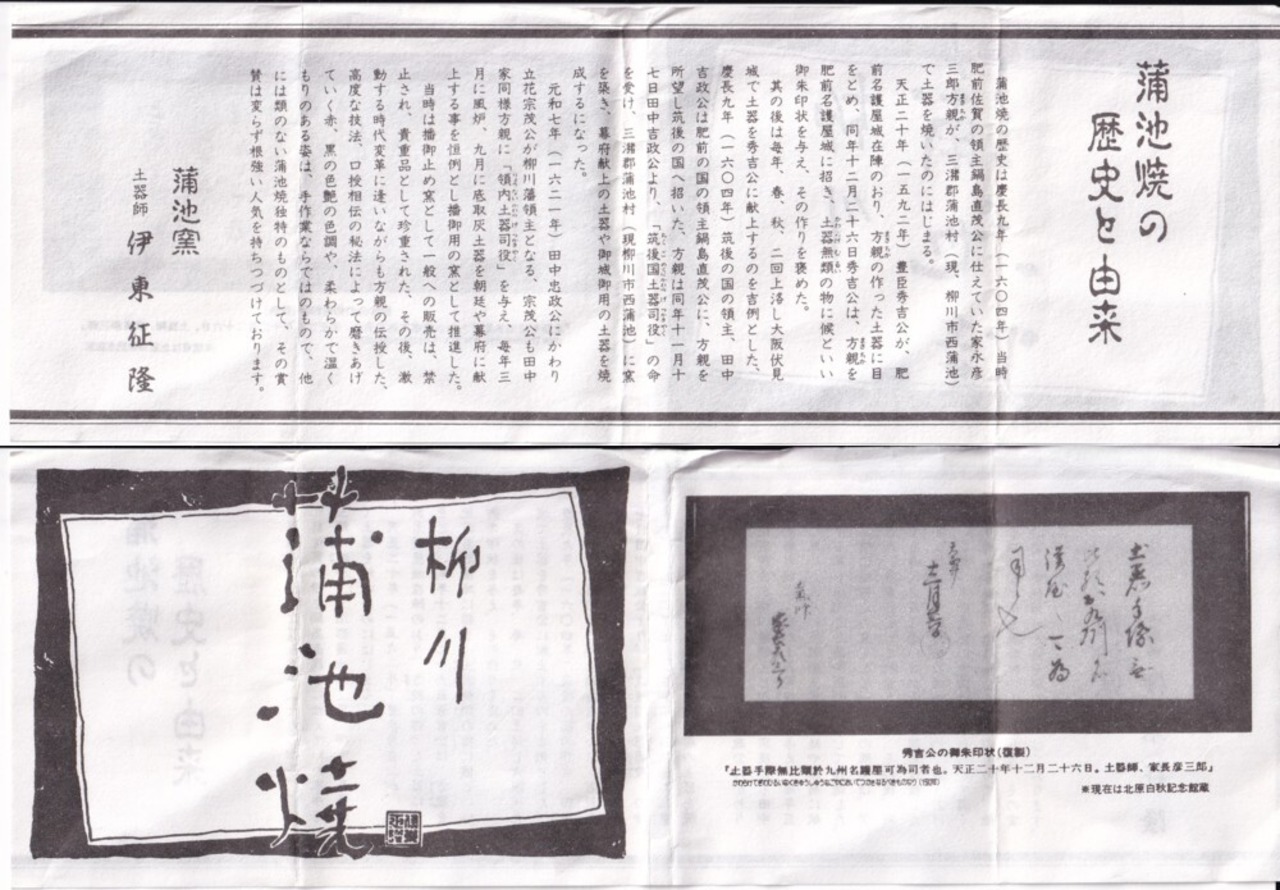 蒲池焼の
歴史と由来
蒲池焼の歴史は慶長九年（一六〇四年）当時
肥前佐賀の領主鍋島直茂公に仕えていた家永彦
三郎方親が、三潴郡蒲池村（現、柳川市西蒲池）
で土器を焼いたのにはじまる。
天正二十年（一五九二年）豊臣秀吉公が、肥
前名護屋城在陣のおり、方親の作った土器に目
をとめ、同年十二月二十六日秀吉公は、方親を
肥前名護屋城に招き、土器無類の物に候とい
御朱印状を与え、その作りを褒めた。
其の後は毎年、春、秋、二回上洛し大阪伏見
城で土器を秀吉公に献上するのを吉例とした。
慶長九年（一六〇四年）筑後の国の領主、田中
吉政公は肥前の国の領主鍋島直茂公に、方親を
所望し筑後の国へ招いた、方親は同年十一月十
七日田中吉政公より、「筑後国土器司役」の命
を受け、三潴郡蒲池村（現柳川市西蒲池）に窯
を築き、幕府献上の土器や御城御用の土器を焼
成するになった。
元和七年（一六二一年）田中忠政公にかわり
立花宗茂公が柳川藩領主となる、宗茂公も田中
家同様方親に「領内土器司役」を与え、毎年三
月に風炉、九月に底取灰土器を朝廷や幕府に献
上する事を恒例とし播御用の窯として推進した。
当時は播御止め窯として一般への販売は、禁
止され、貴重品として珍重された、その後、激
動する時代変革に逢いながらも方親の伝授した、
高度な技法、口授相伝の秘法によって磨きあげ
ていく赤、黒の色艶の色調や、柔わらかで温く
もりのある姿は、手作業ならではのもので、他
には類のない蒲池焼独特のものとして、その賞
賛は変らず根強い人気を持ちつづけております。
蒲池窯
土器師 伊東征隆
柳川
蒲池焼
秀吉公の御朱印状（復製）
「土器手際無比類於九州名護屋可為司者也。天正二十年十二月二十六日。土器師、家長彦三郎」
※現在は北原白秋記念館蔵